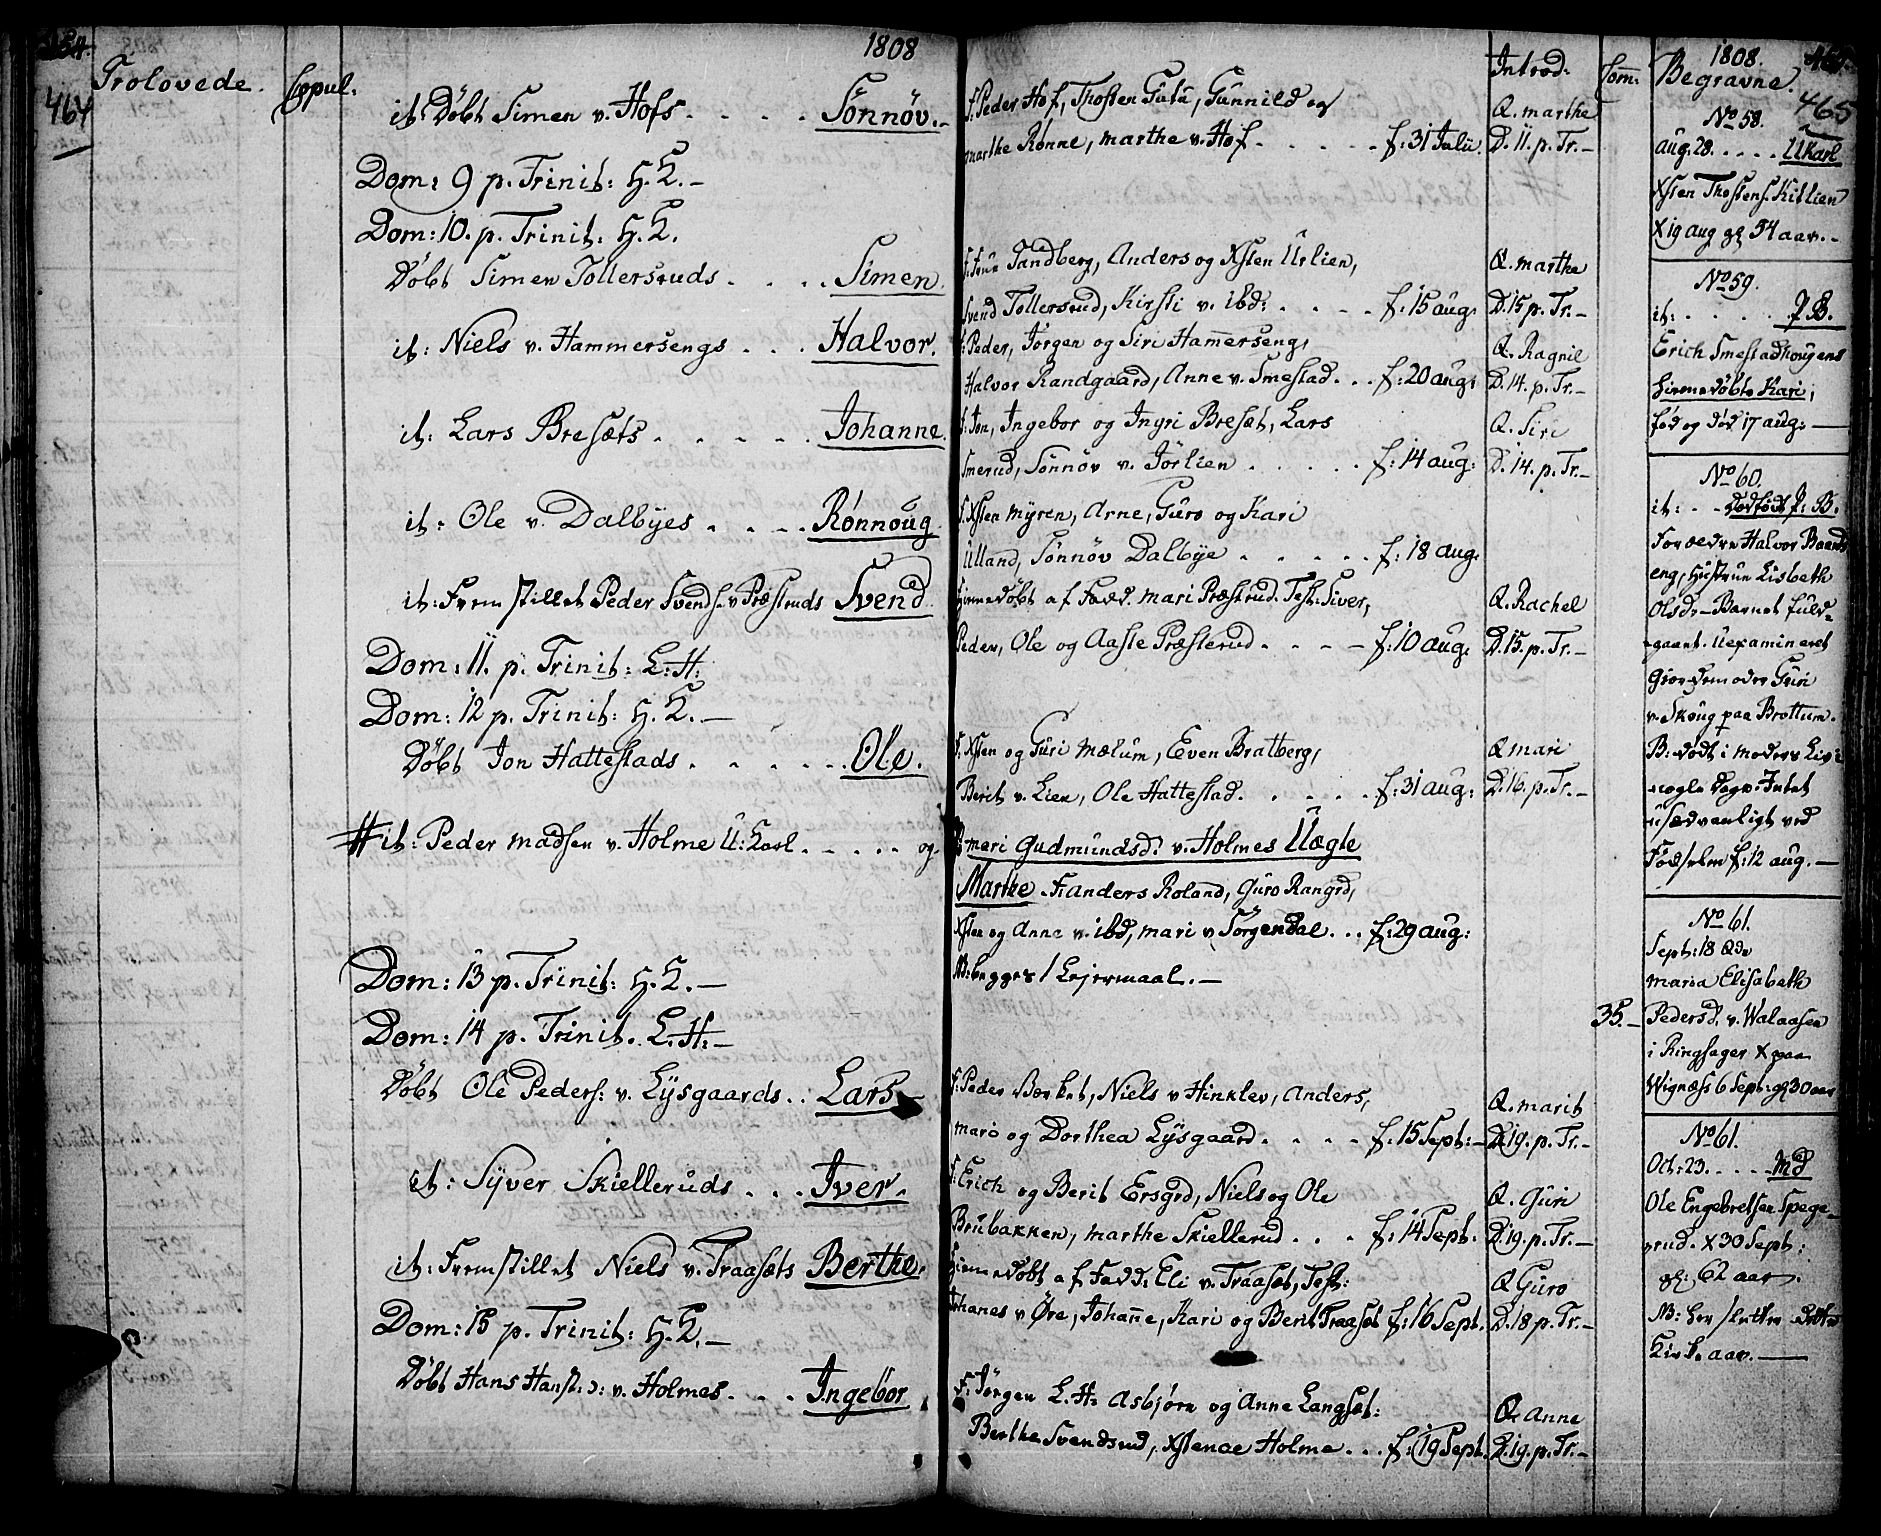 464
Trolovede. Copul: 1808
it: Döbt Simen v. Hofs. . . . . Sönnöv.-
Dom: 9 p. Trinit: H. K.-
Dom: 10. p. Trinit: H. K.
Döbt Simen Tollersruds . . . . Simen.
it: Niels v. Hammersengs . . . Halvor.
it: Lars Bresæts. . . . . . Johanne.
it: Ole v. Dalbÿes . . . . Rønnoug.
it: Frem stillet Peder Svends. v. Præstruds Svend.
Dom: 11. p. Trinit: L. H:
Dom: 12 p. Trinit: H. K.-
Döbt Jon Hattestads . . . . . . Ole.
# it: Peder madsen v. Holme U: Karl . . . . . og
Dom: 13 p. Trinit: H. K.-
Dom: 14 p. Trinit. L. H:-
Döbt Ole Peders: v. Lÿsgaards . . Lars.
it: Sÿver Skielleruds . . . Iver.
it: Fremstillet Niels v. Traasæts Berthe.
Dom: 15 p. Trinit: H. K.-
Döbt Hans Hans: v. Holmes. . . . Ingebor
F: Peder Hof, Thosten Gutu, Gunnild og
marthe Rønne, marthe v. Hof . . . . . f: 31 Julii.
F: Sandberg, Anders og Xsten Urlien,
Svend Tollersrud, Kirsti v. ibd: . . . . f: 15 aug:
F: Peder, Jörgen og Siri Hamerseng,
Halvor Randgaard, Anne v. Smestad. . . f: 20 aug:
F: Jon, Ingebor og Ingri Bresæt, Lars
Smerud, Sönnöv v. Jörlien . . . . . f: 14 aug:
F. Xsten mÿren, Arne, Guro og Kari
Ulland, Sönnöv Dalbÿe . . . . . f: 18 aug:
Hiemedøbt af Fadd. mari Præstrud. Test: Siver,
Peder, Ole og Aaste Præsterud . . . . - f: 10 aug:
F. Xsten og Guri mælum, Even Bratberg,
Berit v. Lien, Ole Hattestad. . . . . f: 31 aug:
P: mari Gudmundsd: v. Holmes Uægte
Marthe F: anders Roland, Guro Rangrd,
Xsten og Anne v. ibd, mari v. Sörgendal . . . f: 29 aug:
NB: begges 1 Lejermaal.-
F: Peder Bærket, Niels v Hinklev, Anders,
mari og Dorthea Lÿsgaard . . . . f: 15 Sept:-
F: Erich og Berit Ersgrd, Niels og Ole
Brubakken, marthe Skiellerud . . . f: 14 Sept:
Hiemedöbt af Fadd: Eli v. Traasæt, Test:
Johanes v Øre, Johanne, Kari og Berit Traasæt f: 16 Sept.
F: Jörgen L. H: Asbjörn og Anne Langsæt:
Berthe Svendsrud, Xstense Holme . . . f: 19 Sept.
Introd:
Q. marthe
D. 11. p. Tr.-
Q. marthe
D. 15 p. Tr.-
Q. Ragnil
D. 14. p. Tr.-
Q. Siri
D. 14. p. Tr.-
Q. Rachel
D. 15. p. Tr.-
Q mari
D. 16. p. Tr.-
Q. marit
D. 19. p. Tr.-
Q. Guri
D. 19. p. Tr.-
Q Guro
D. 18 p. Tr.-
Q. Anne
D. 19. p. Tr.-
Com:
35.-
1808.
Begravne. 465
No 58.
aug. 28. . . . . UKarl
Xsten Thostens. Kitlien
X 19 aug gl 54 aar.-
No 59.
it: . . . . . . P B.
Erich Smestadhougens
hiemedöbte Kari,
fød og död 17 aug:-
No 60.
it: . . dødfødt P: B.
Forældre Halvor Baards
eng, Hustrue Lisbeth
Olsd:- Barnet fuld=
gaaet. U examineret
Giordemoder Guri
v. Skoug paa Brottum.
B: dödt i moders Liv i
nogle Dage. Intet
usædvanligt ved
Födselen f: 12 aug.-
No 61.
Sept: 18 Qde
maria Elisabeth
Pedersd. v. Walaasen
i Ringsager X paa
Wignæss 6 Sept: gl 30 aar
No 61.
Oct: 23. . . . . Md
Ole Engebretsen Spege-
rud. X 30 Sept:
gl: 62 aar.